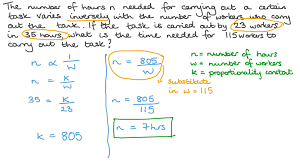 The number of hours n needed for carrying out a certain
task varies inversely with the number of workers who carry
out the task. If the task is carried out by 23 workers
in 35 hours, what is the time needed for 115 workers to
carry out the task?
n ∝ 1/w
n = k/w
35 = k/23
k = 805
n = 805/w
substitute
in w = 115
n = 805/115
n = 7hrs
n = number of hours
w = number of workers
k = proportionality constant